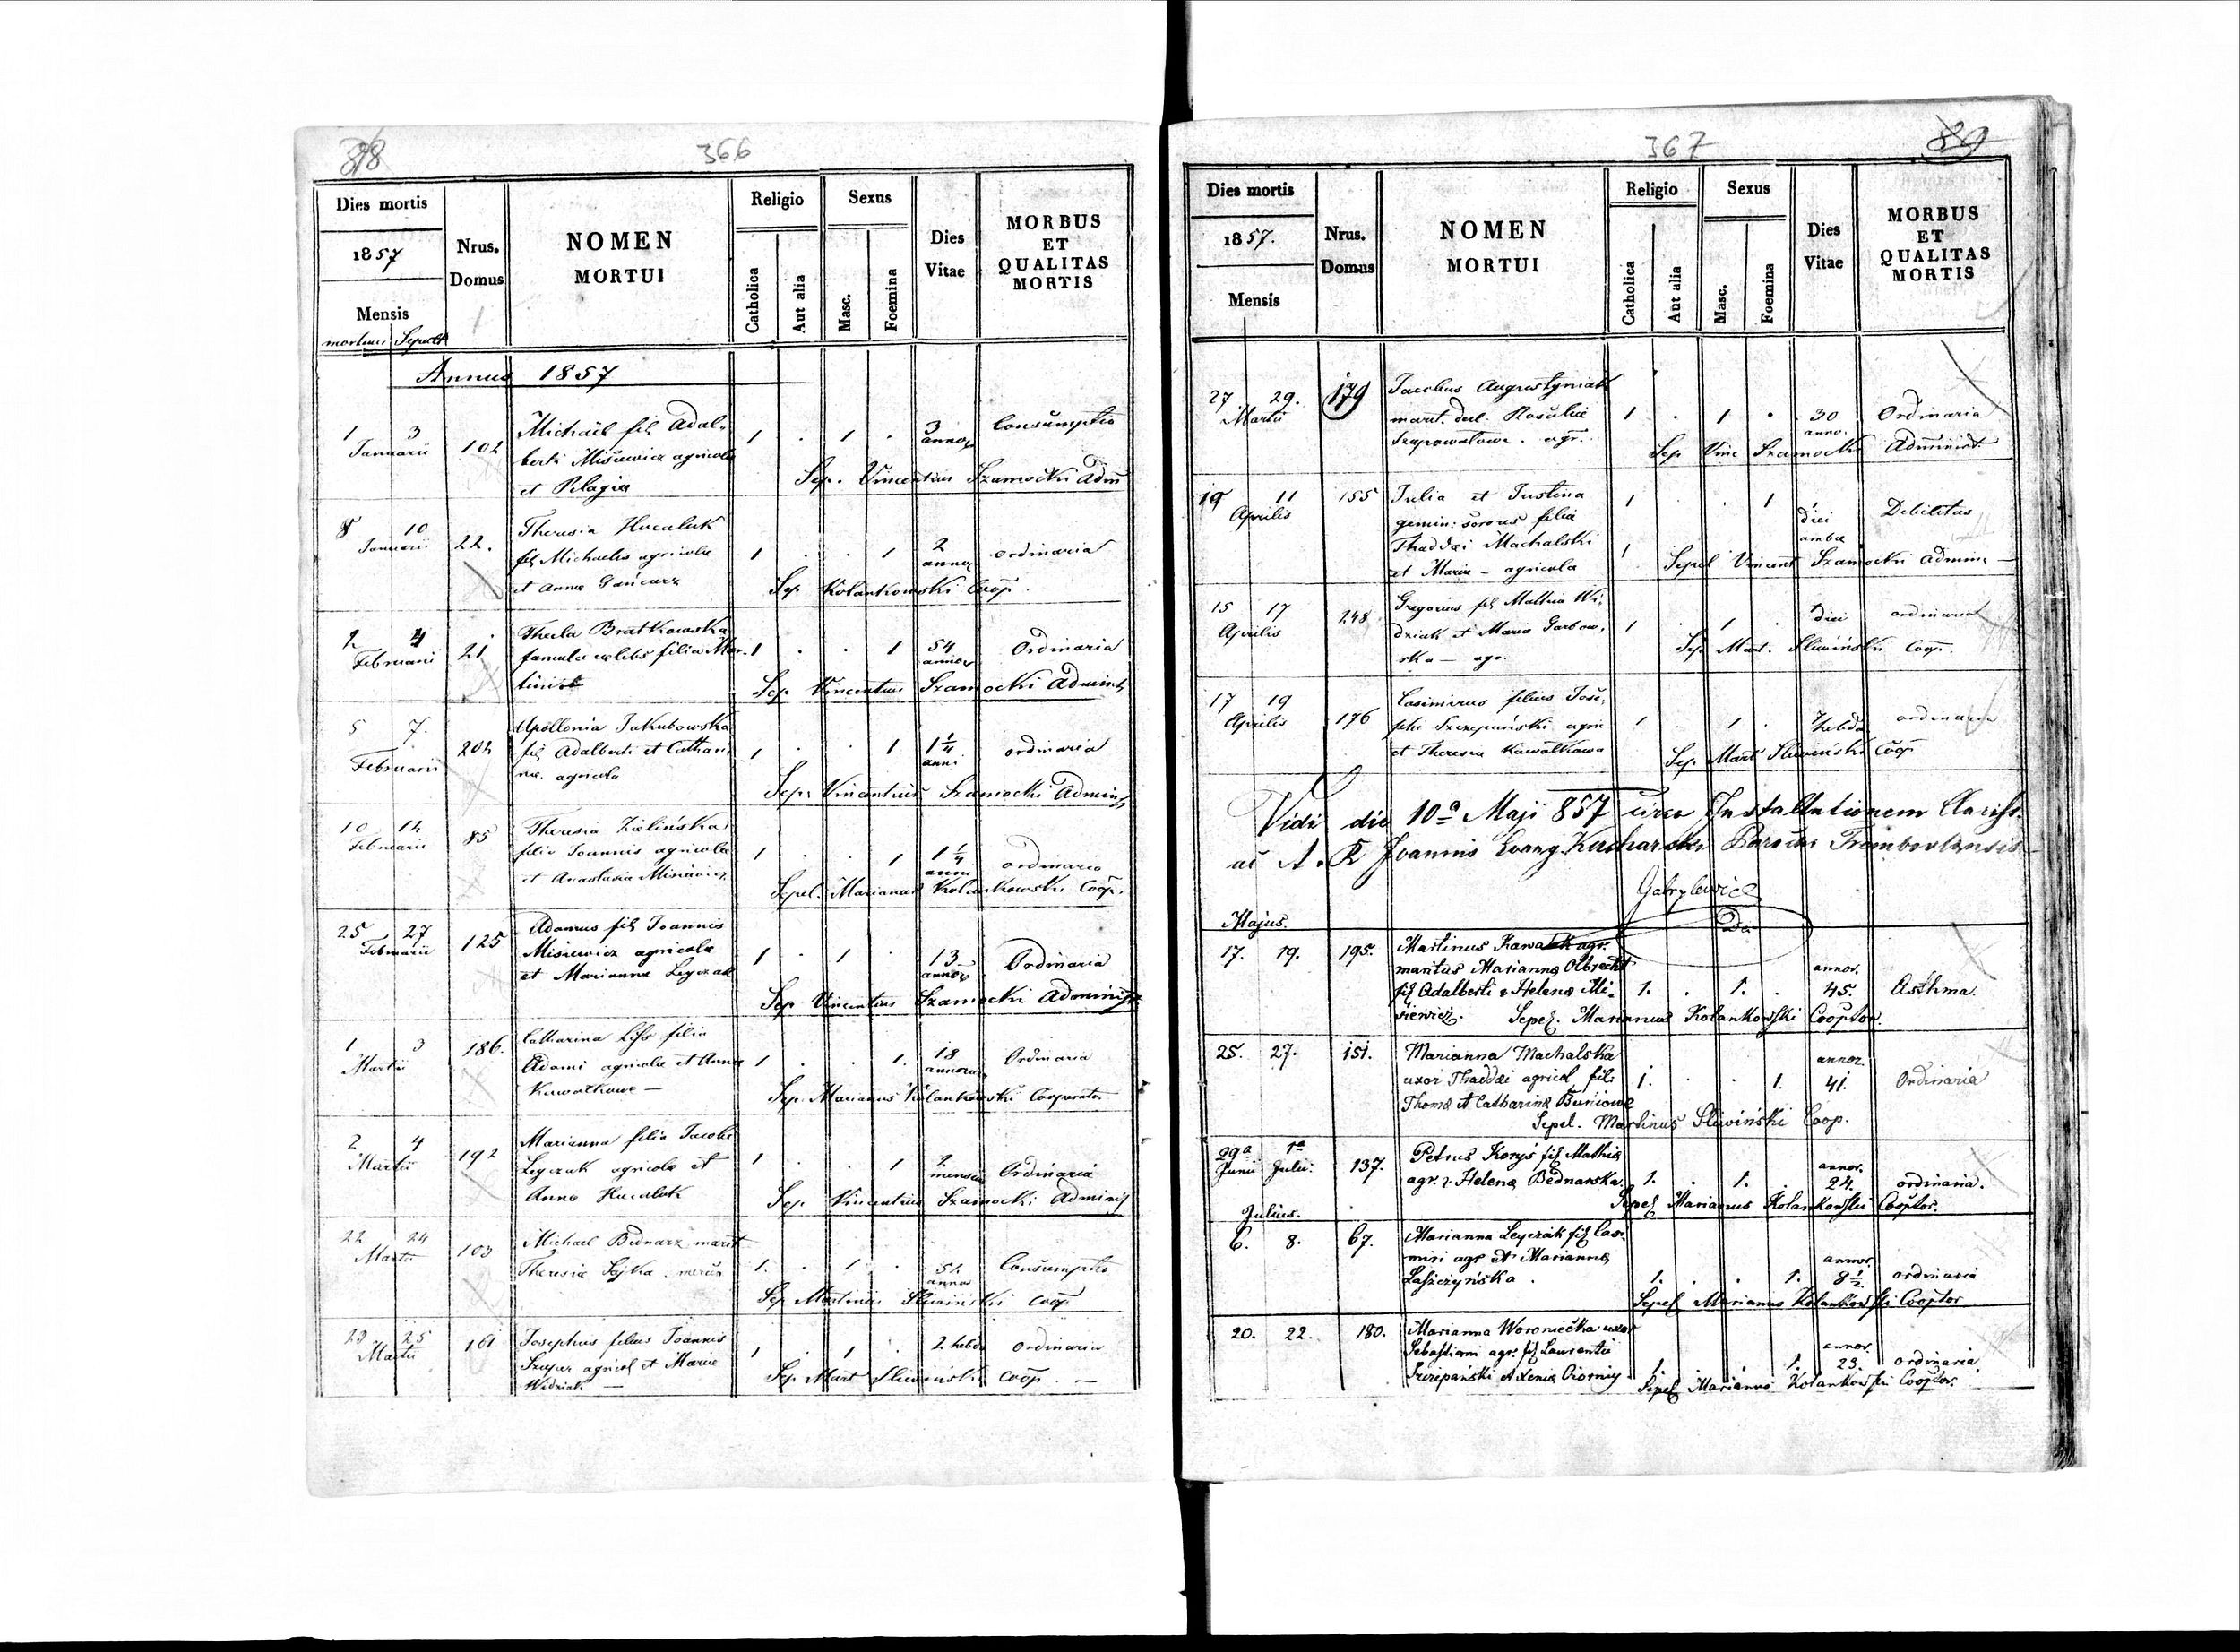 88
366
Dies mortis
1857
Mensis
mortuus Sepult
Nrus.
Domus
NOMEN
MORTUI
Religio
Catholica
Aut alia
Sexus
Masc.
Foemina
Dies
Vitae
MORBUS
ET
QUALITAS
MORTIS
Annus 1857
1 3
Januarii
102
Michaël fil Adal-
berti Misiewicz agricola
et Pelagia
1 . 1 .
3
annor
Consumptio
Sep. Vincentius Szamocki Adm
8 10
Januarii
22.
Theresia Huculuk
fil Michaelis agricola
et Anna Gancarz
1 . . 1
2
annor
ordinaria
Sep Kolankowski Coop
2 4
Februarii
21
Thecla Bratkowska
famula celebs filia Mar-
tini
1 . . 1
54
annor
Ordinaria
Sep Vincentius Szamocki Adminis
5 7.
Februarii
202
Apollonia Jakubowska
fil Adalberti et Cathari
nae. agricola
1 . . 1
1 1/4
anni
ordinaria
Sep. Vincentius Szamocki Adminis
10 12
Februarii
85
Theresia Zielińska
filia Joannis agricola
et Anastasia Misiewicz
1 . . 1
1 1/4
anni
ordinaria
Sepel. Marianus Kolankowski Coop.
25 27
Februarii
125
Adamus fil Joannis
Misiewicz agricola
et Marianna Leyczak
1 . 1 .
13
annor
Ordinaria
Sep Vincentius Szamocki Administ
1 3
Martii
186.
Catharina filia
Adami agricola et Anna
Kawalkowa —
1 . . 1.
18
annorum
Ordinaria
Sep. Marianus Kolankowski Cooperator
2 4
Martii
192
Marianna filia Jacobi
Leyczak agricola et
Anna Huculuk
1 . . 1
2
mensium
Ordinaria
Sep Vincentius Szamocki Adminis
22 24
Martii
103
Michael Bednarz marit
Theresia
1. . 1 .
51.
annor
Consumptio
Sep Martinus Sliwiński Coop
23 25
Martii
161
Josephus filius Joannis
agricol et Maria
Widziak —
1 . 1 .
2 hebd
ordinaria
Sep. Mart Sliwiński Coop. —
367
89
Dies mortis
1857.
Mensis
Nrus.
Domus
NOMEN
MORTUI
Religio
Catholica
Aut alia
Sexus
Masc.
Foemina
Dies
Vitae
MORBUS
ET
QUALITAS
MORTIS
27 29.
Martii
179
Jacobus Augustyniak
marit. Rosalia
agr.
1 . 1 .
30
anno.
Ordinaria
Sep Vinc Szamocki Administ
11
Aprilis
155
Julia et Justina
gemin: sorores filia
Thaddæi Machalski
et Maria — agricola
1 . . 1
1
1
diei
ambæ
Debilitas
Sepel Vincent Szamocki Admin —
15 17
Aprilis
248
Gregorius fil Mathia Wi-
dziak et Maria Garbow-
ska — agr.
1 . 1 .
1
diei
ordinaria
Sep Mart. Sliwiński Coop.
17 19
Aprilis
176
Casimirus filius Jose-
phi Szczepański agri
et Theresia Kawalkowa
1 . 1 .
hebd
ordinaria
Sep. Mart Sliwiński Coop
Vidi die 10a Maji 857 circa Installationem Clariss.
ac A. R Joannis Evang. Kucharski Parochi Trembovlensis
Gabrylewicz
Majus.
17. 19.
195.
Martinus Kawalek agr.
maritus Marianna Olbrecht
fil Adalberti & Helena Mi-
siewicz.
1. . 1. .
annor.
45.
Asthma.
Sepel. Marianus Kolankowski Cooptor.
25. 27.
151.
Marianna Machalska
uxor Thaddæi agricol fil.
Thoma et Catharina Buniowa
1. . . 1.
annor.
41.
Ordinaria
Sepel. Martinus Sliwiński Coop.
29a 1a
Junii Julii.
137.
Petrus Koryś fil Mathia
agr. & Helena Bednarska.
1. . 1. .
annor.
24.
ordinaria.
Sepel Marianus Kolankowski Cooptor.
Julius.
6. 8.
67.
Marianna Leyczak fil Casi-
miri agr et Marianna
Laszczyńska.
1. . . 1.
annor.
8 1/2.
ordinaria
Sepel Marianus Kolankowski Cooptor
20. 22.
180.
Marianna Woroniecka uxor
Sebastiani agr. fil Laurentii
Szczepański et Xenia Czorniy
1. . . 1.
annor.
23.
ordinaria
Sepel Marianus Kolankowski Cooptor.